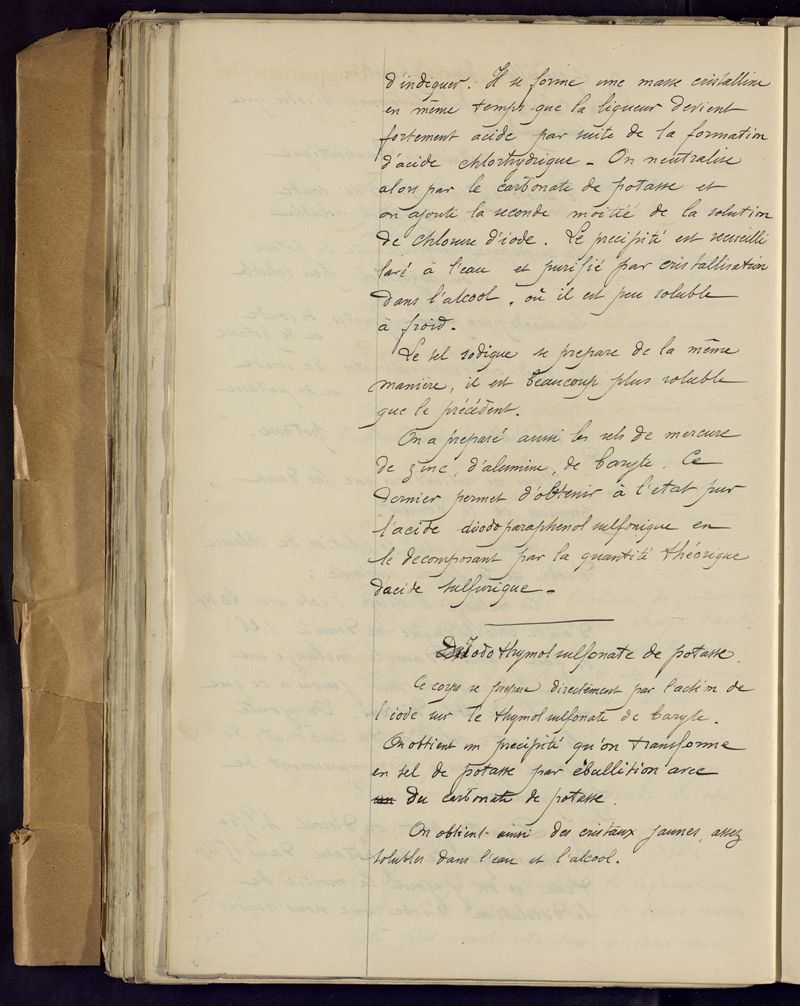 d'indiquer. Il se forme une masse cristalline
en même temps que la liqueur devient
fortement acide par suite de la formation
d'acide chlorhydrique - On neutralise
alors par le carbonate de potasse et
on ajoute la seconde moitié de la solution
de chlorure d'iode. Le precipité est recueilli
lavé à l'eau et purifié par cristallisation
dans l'alcool, où il est peu soluble
à froid.
Le sel sodique se prepare de la même
manière, il est beaucoup plus soluble
que le précédent.
On a preparé aussi les sels de mercure
de zinc, d'alumine, de baryte. Ce
dernier permet d'obtenir à l'etat pur
l'acide diiodoparaphenol sulfonique en
le decomposant par la quantité théorique
d'acide sulfurique -
Iodothymolsulfonate de potasse.
Ce corps se prepare directement par l'action de
l'iode sur le thymolsulfonate de baryte.
On obtient un precipité qu'on transforme
en sel de potasse par ébullition avec
du carbonate de potasse.
On obtient ainsi des cristaux jaunes, assez
solubles dans l'eau et l'alcool.